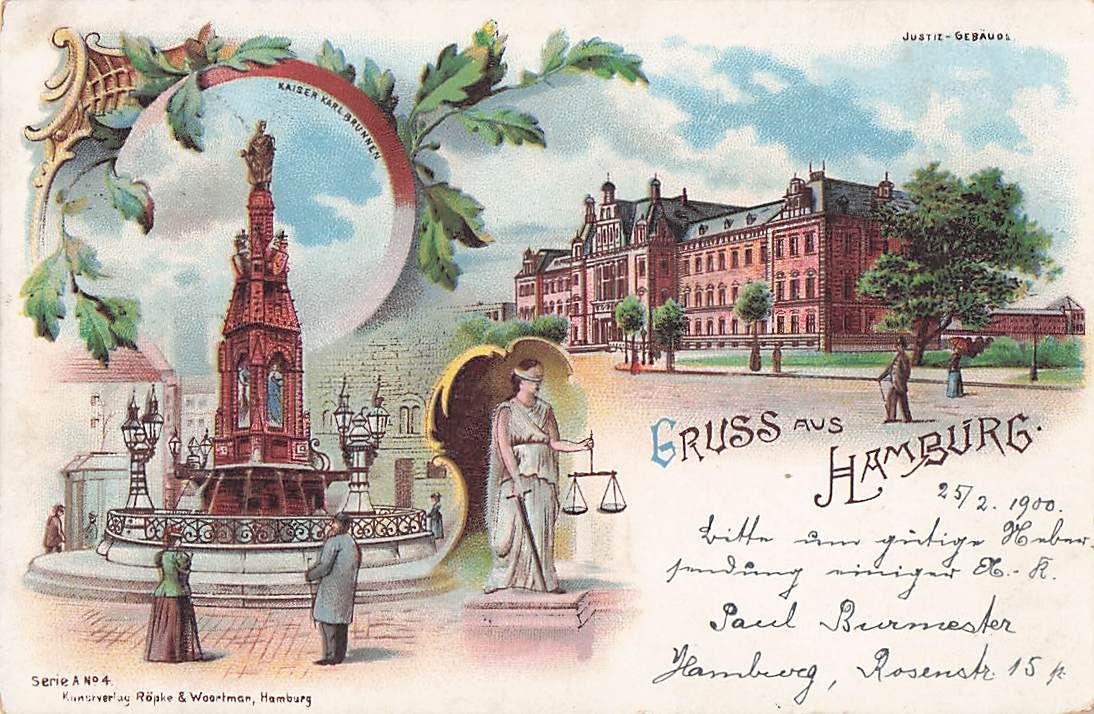 JUSTIZ-GEBÄUDE
KAISER KARL BRUNNEN
GRUSS AUS
HAMBURG.
25/2. 1900.
Bitte um gütige Ueber-
sendung einiger A.-K.
Paul Burmester
Hamburg, Rosenstr. 15
Serie A No 4.
Kunstverlag Röpke & Woortman, Hamburg